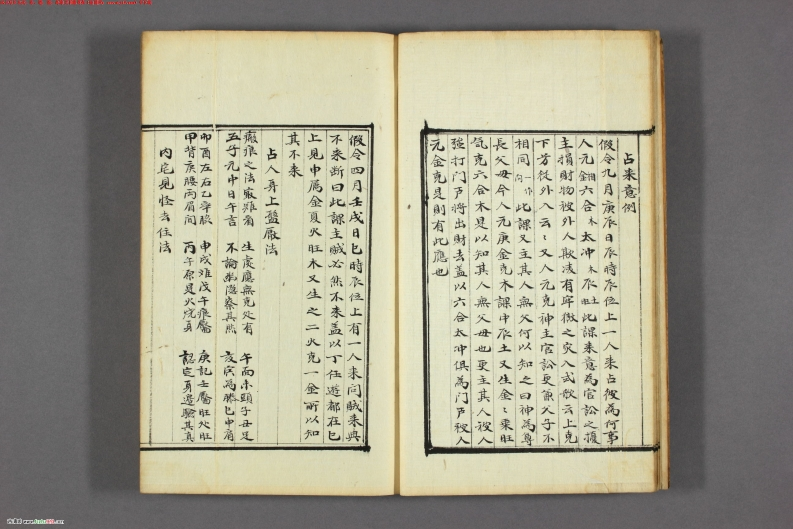 占来意例
假令九月庚辰日辰時辰位上一人来占彼為何事
人元 六合木 太冲木 辰土 此課来意為官訟之擾
主損財物被外人欺凌有牢獄之灾入式歌云上克
下芳從外入云云又人元克神主官訟更兼父子不
相同 此課又主其人無父何以知之曰神為尊
長父母今人元庚金克木課中辰土又生金々乗旺
氣克六合木是以知其人無父母也更主其人被人
強打門戶將出財去蓋以六合太冲俱為門戶被人
元金克是則有此應也
假令四月壬戌日巳時辰位上有一人来问賊来與
不来断曰此課主賊必然不来盖以丁任遊都在巳
上見申属金夏火旺木又生之二火克一金所以知
其不来
占人身上盤厭法
瘢痕之法最難看 生處應無克处有 午面未頭子丑足
五子元中日午言 不論幽隐察其然 亥寅為膝巳申肩
卯酉左右乙辛脇 申戌难戊午痕靨 庚記壬靨旺处旺
甲背庚腰丙眉間 丙午原是火烧身 認定身邉驗其真
内宅見怪去住法